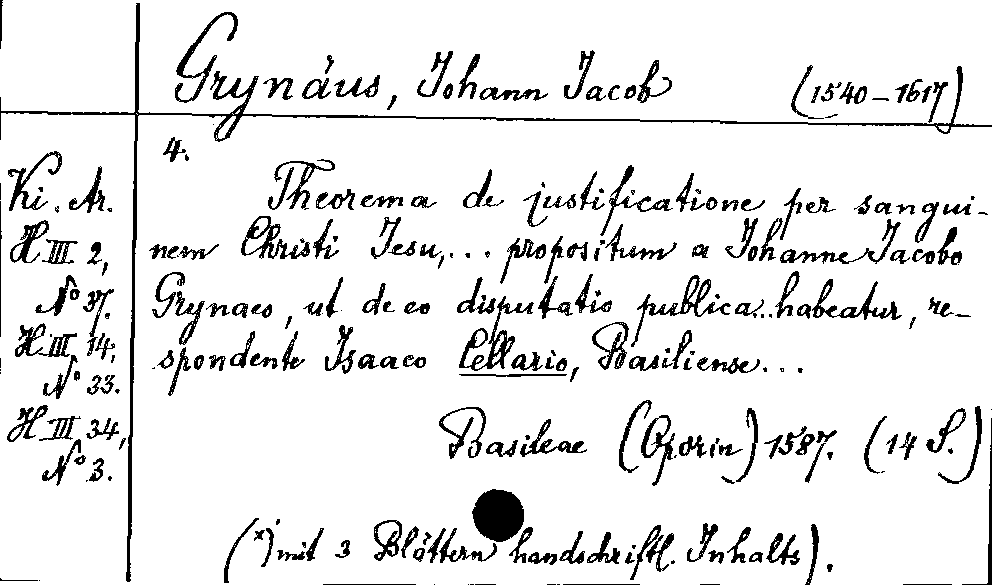 Grynäus, Johann Jacob (1540-1617)
4.
Ki. Ar.
H III 2,
No 37.
H III 14,
No 33.
H III 34,
No 3.
Theorema de justificatione per sangui-
nem Christi Jesu,... propositum a Johanne Jacobo
Grynaeo, ut de eo disputatio publica...habeatur, re-
spondente Isaaco Cellario, Basiliense...
Basileae (Oporin) 1587. (14 S.)
(x) mit 3 Blättern handschriftl. Inhalts).